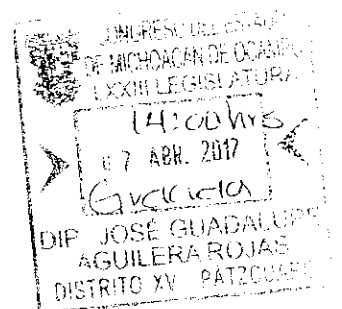 CONGRESO DEL ESTADO
DE MICHOACAN DE OCAMPO
LXXIII LEGISLATURA
14:00 hrs
07 ABR. 2017
Graciela
DIP. JOSÉ GUADALUPE
AGUILERA ROJAS
DISTRITO XV PATZCUARO